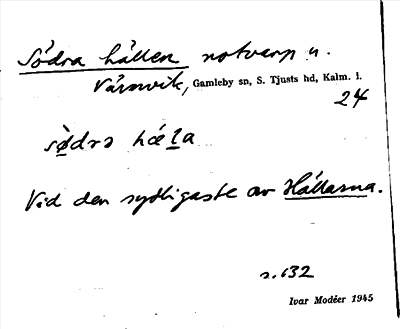 Södra hållen notvarp u.
Vårmvik, Gamleby sn, S. Tjusts hd, Kalm. l.
24
Vid den sydligaste av Hållarna.
s. 632
Ivar Modéer 1945